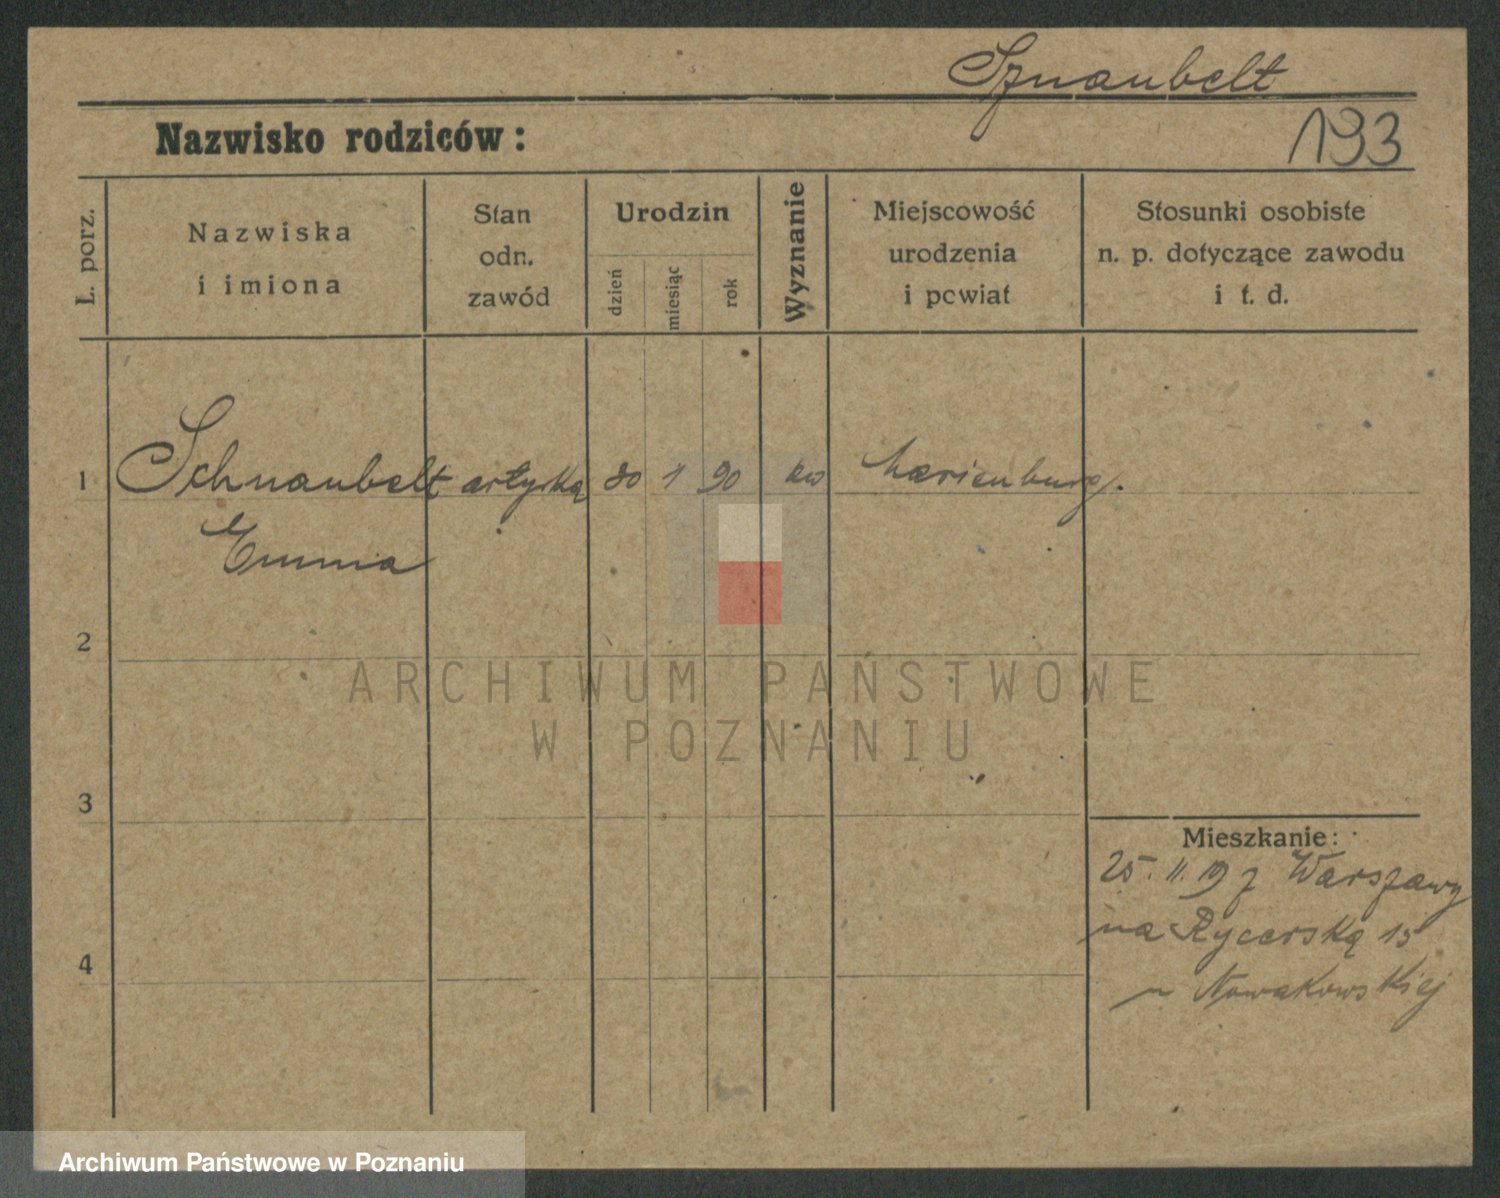 Sznaubelt
Nazwisko rodziców:
193
L. porz.
Nazwiska
i imiona
Stan
odn.
zawód
Urodzin
dzień
miesiąc
rok
Wyznanie
Miejscowość
urodzenia
i powiat
Stosunki osobiste
n. p. dotyczące zawodu
i t. d.
1 Schnaubelt artystka 1 90 Marienburg.
Emma
2
ARCHIWUM PAŃSTWOWE
W POZNANIU
3
Mieszkanie:
25. 11. 19 z Warszawy
na Rycerską 15
4
u Nowakowskiej
Archiwum Państwowe w Poznaniu